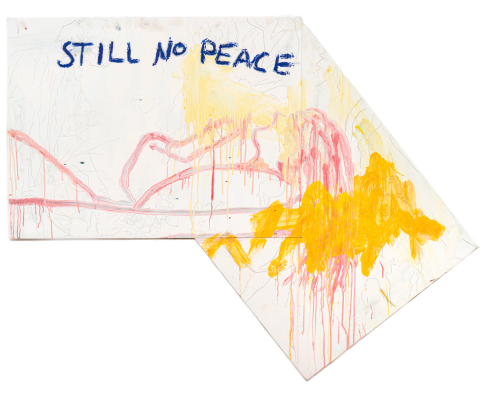 STILL NO PEACE